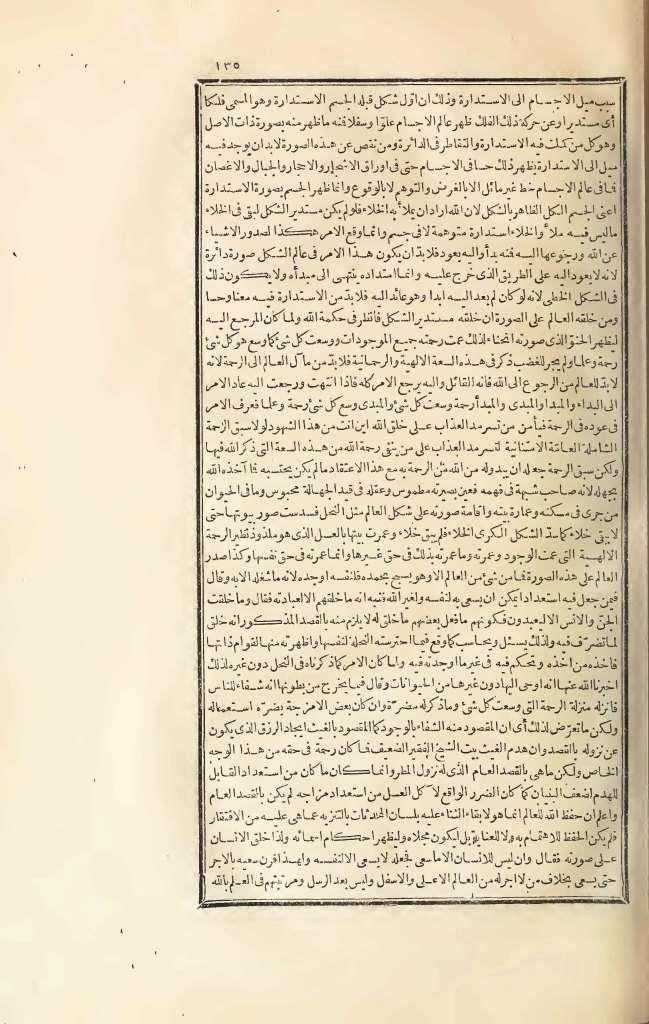 ١٣٥
سبب ميل الاجسام الى الاستدارة وذلك ان اول شكل قبله الجسم الاستدارة وهو المسمى فلكا
أى مستديرا وعن حركة ذلك الفلك ظهر عالم الاجسام علوا وسفلا فنه ماظهر منه بصورة ذات الاصل
وهو كل من كملت فيه الاستدارة والتقاطر فى الدائرة ومن نقص عن هذه الصورة لابد ان يوجد فيه
ميل الى الاستدارة يظهر ذلك حسا فى الاجسام حتى فى اوراق الاشجار والاحجار والجبال والاغصان
فما فى عالم الاجسام خط غير مائل الا بالفرض والتوهم لا بالوقوع وانما ظهر الجسم بصورة الاستدارة
اعنى الجسم الكل الظاهر بالشكل لان الله اراد ان يملأ به الخلاء فلو لم يكن مستدير الشكل لبقى فى الخلاء
ماليس فيه ملأ والخلاء استدارة متوهمة لا فى جسم وانما وقع الامر هكذا لصدور الاشياء
عن الله ورجوعها اليه فنه بدأ واليه يعود فلابد ان يكون هذا الامر فى عالم الشكل صورة دائرة
لانه لا يعود اليه على الطريق الذى خرج عليه وانما امتداده ينتهى الى مبدأه ولا يكون ذلك
فى الشكل الخطى لانه لو كان لم يعد اليه ابدا وهو عائد اليه فلابد من الاستدارة فيه معنا وحسا
ومن خلقه العالم على الصورة ان خلقه مستدير الشكل فانظر فى حكمة الله ولما كان المرجع اليه
ليظهر الحنو الذى صورته انحناء لذلك عمت رحمته جميع الموجودات ووسعت كل شئ كما وسع هو كل شئ
رحمة وعلما ولم يجر للغضب ذكر فى هذه السعة الالهية والرحمانية فلابد من مآل العالم الى الرحمة لانه
لابد للعالم من الرجوع الى الله فانه القائل واليه يرجع الامر كله فاذا انتهت ورجعت اليه عاد الامر
الى البداء والمبدا والمبدى والمبدأ رحمة وسعت كل شئ والمبدى وسع كل شئ رحمة وعلما فعرف الامر
فى عوده فى الرحمة فيأمن من تسرمد العذاب على خلق الله اين انت من هذا الشهود لولا سبق الرحمة
الشاملة العامة الامتنانية لتسرمد العذاب على من ينفى رحمة الله من هذه السعة التى ذكر الله فيها
ولكن سبق الرحمة جعله ان يبدو له من الله من الرحمة به مع هذا الاعتقاد مالم يكن يحتسبه فما آخذه الله
بجهله لانه صاحب شبهة فى فهمه فعين بصيرته مطموس وعقله فى قيد الجهالة محبوس وما فى الحيوان
من جرى فى مسكنه وعمارة بيته واقامة صورته على شكل العالم مثل النحل فسدست صور بيوتها حتى
لا يبقى خلاء كما سد الشكل الكرى الخلاء فلم يبق خلاء وعمرت بيتها بالعسل الذى هو ملذوذ نظير الرحمة
الالهية التى عمت الوجود وعمرته وما عمرته بذلك فى حق غيرها وانما عمرته فى حق نفسها وكذا صدر
العالم على هذه الصورة فما من شئ من العالم الا وهو يسبح بحمده فلنفسه اوجده لانه ما شغله الا به وقال
فيمن جعل فيه استعدادا يمكن ان يسعى به لنفسه ولغير الله فنبه انه ما خلقهم الا لعبادته فقال وما خلقت
الجن والانس الا ليعبدون فكونهم ما فعل بعضهم ما خلق له لا يلزم منه بالقصد المذكور انه خلق
لما تصرف فيه ولذلك يسئل ويحاسب كما وقع فيما احترسته النحلة لنفسها واظهرته منها لقوام ذاتها
فاخذه من اخذه وتحكم فيه فى غير ما اوجدته فيه ولما كان الامر كما ذكرناه فى النحل دون غيره لذلك
اخبرنا الله عنها انه اوحى اليها دون غيرها من الحيوانات وقال فيما يخرج من بطونها انه شفاء للناس
فانزله منزلة الرحمة التى وسعت كل شئ وما ذكر له مضرة وان كان بعض الامزجة يضره استعماله
ولكن ما تعرض لذلك أى ان المقصود منه الشفاء بالوجود كما المقصود بالغيث ايجاد الرزق الذى يكون
عن نزوله بالقصد وان هدم الغيث بيت الشيخ الفقير الضعيف فما كان رحمة فى حقه من هذا الوجه
الخاص ولكن ما هى بالقصد العام الذى له نزول المطر وانما كان ما كان من استعداد القابل
للهدم لضعف البنيان كما كان الضرر الواقع لآكل العسل من استعداد مزاجه لم يكن بالقصد العام
واعلم ان حفظ الله للعالم انما هو لابقاء الثناء عليه بلسان المحدثات بالتنزيه عما هى عليه من الافتقار
فلم يكن الحفظ للاهتمام به ولا للعناية بل ليكون مجلاه وليظهر احكام اسمائه ولذا خلق الانسان
على صورته فقال وان ليس للانسان الا ماسعى فجعله لا يسعى الا لنفسه ولهذا قرن سعيه بالاجر
حتى يسعى بخلاف من لا اجر له من العالم الاعلى والاسفل وليس بعد الرسل ومرتبتهم فى العلم بالله